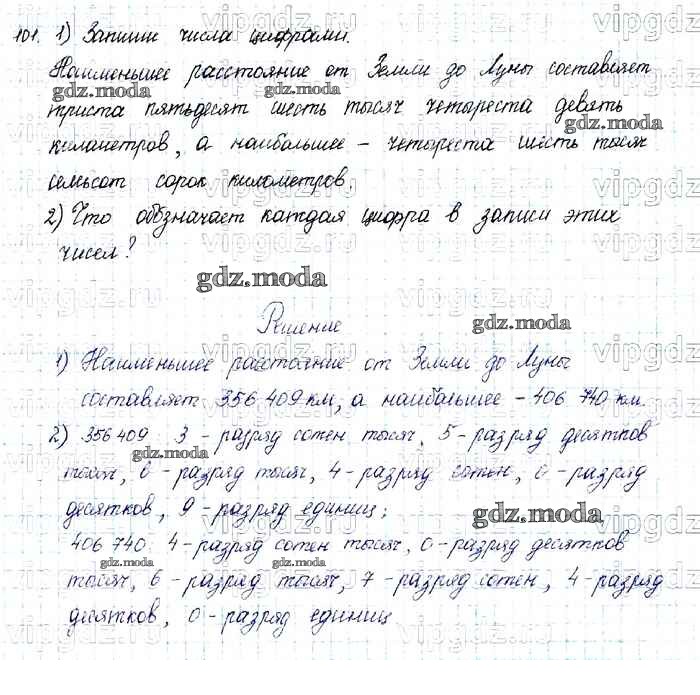 101. 1) Запиши числа цифрами.
Наименьшее расстояние от Земли до Луны составляет
триста пятьдесят шесть тысяч четыреста девять
километров, а наибольшее – четыреста шесть тысяч
семьсот сорок километров.
2) Что обозначает каждая цифра в записи этих
чисел?
Решение
1) Наименьшее расстояние от Земли до Луны
составляет 356 409 км, а наибольшее – 406 740 км.
2) 356 409 3 – разряд сотен тысяч, 5 – разряд десятков
тысяч, 6 – разряд тысяч, 4 – разряд сотен, 0 – разряд
десятков, 9 – разряд единиц;
406 740 4 – разряд сотен тысяч, 0 – разряд десятков
тысяч, 6 – разряд тысяч, 7 – разряд сотен, 4 – разряд
десятков, 0 – разряд единиц
gdz.moda
vipgdz.ru